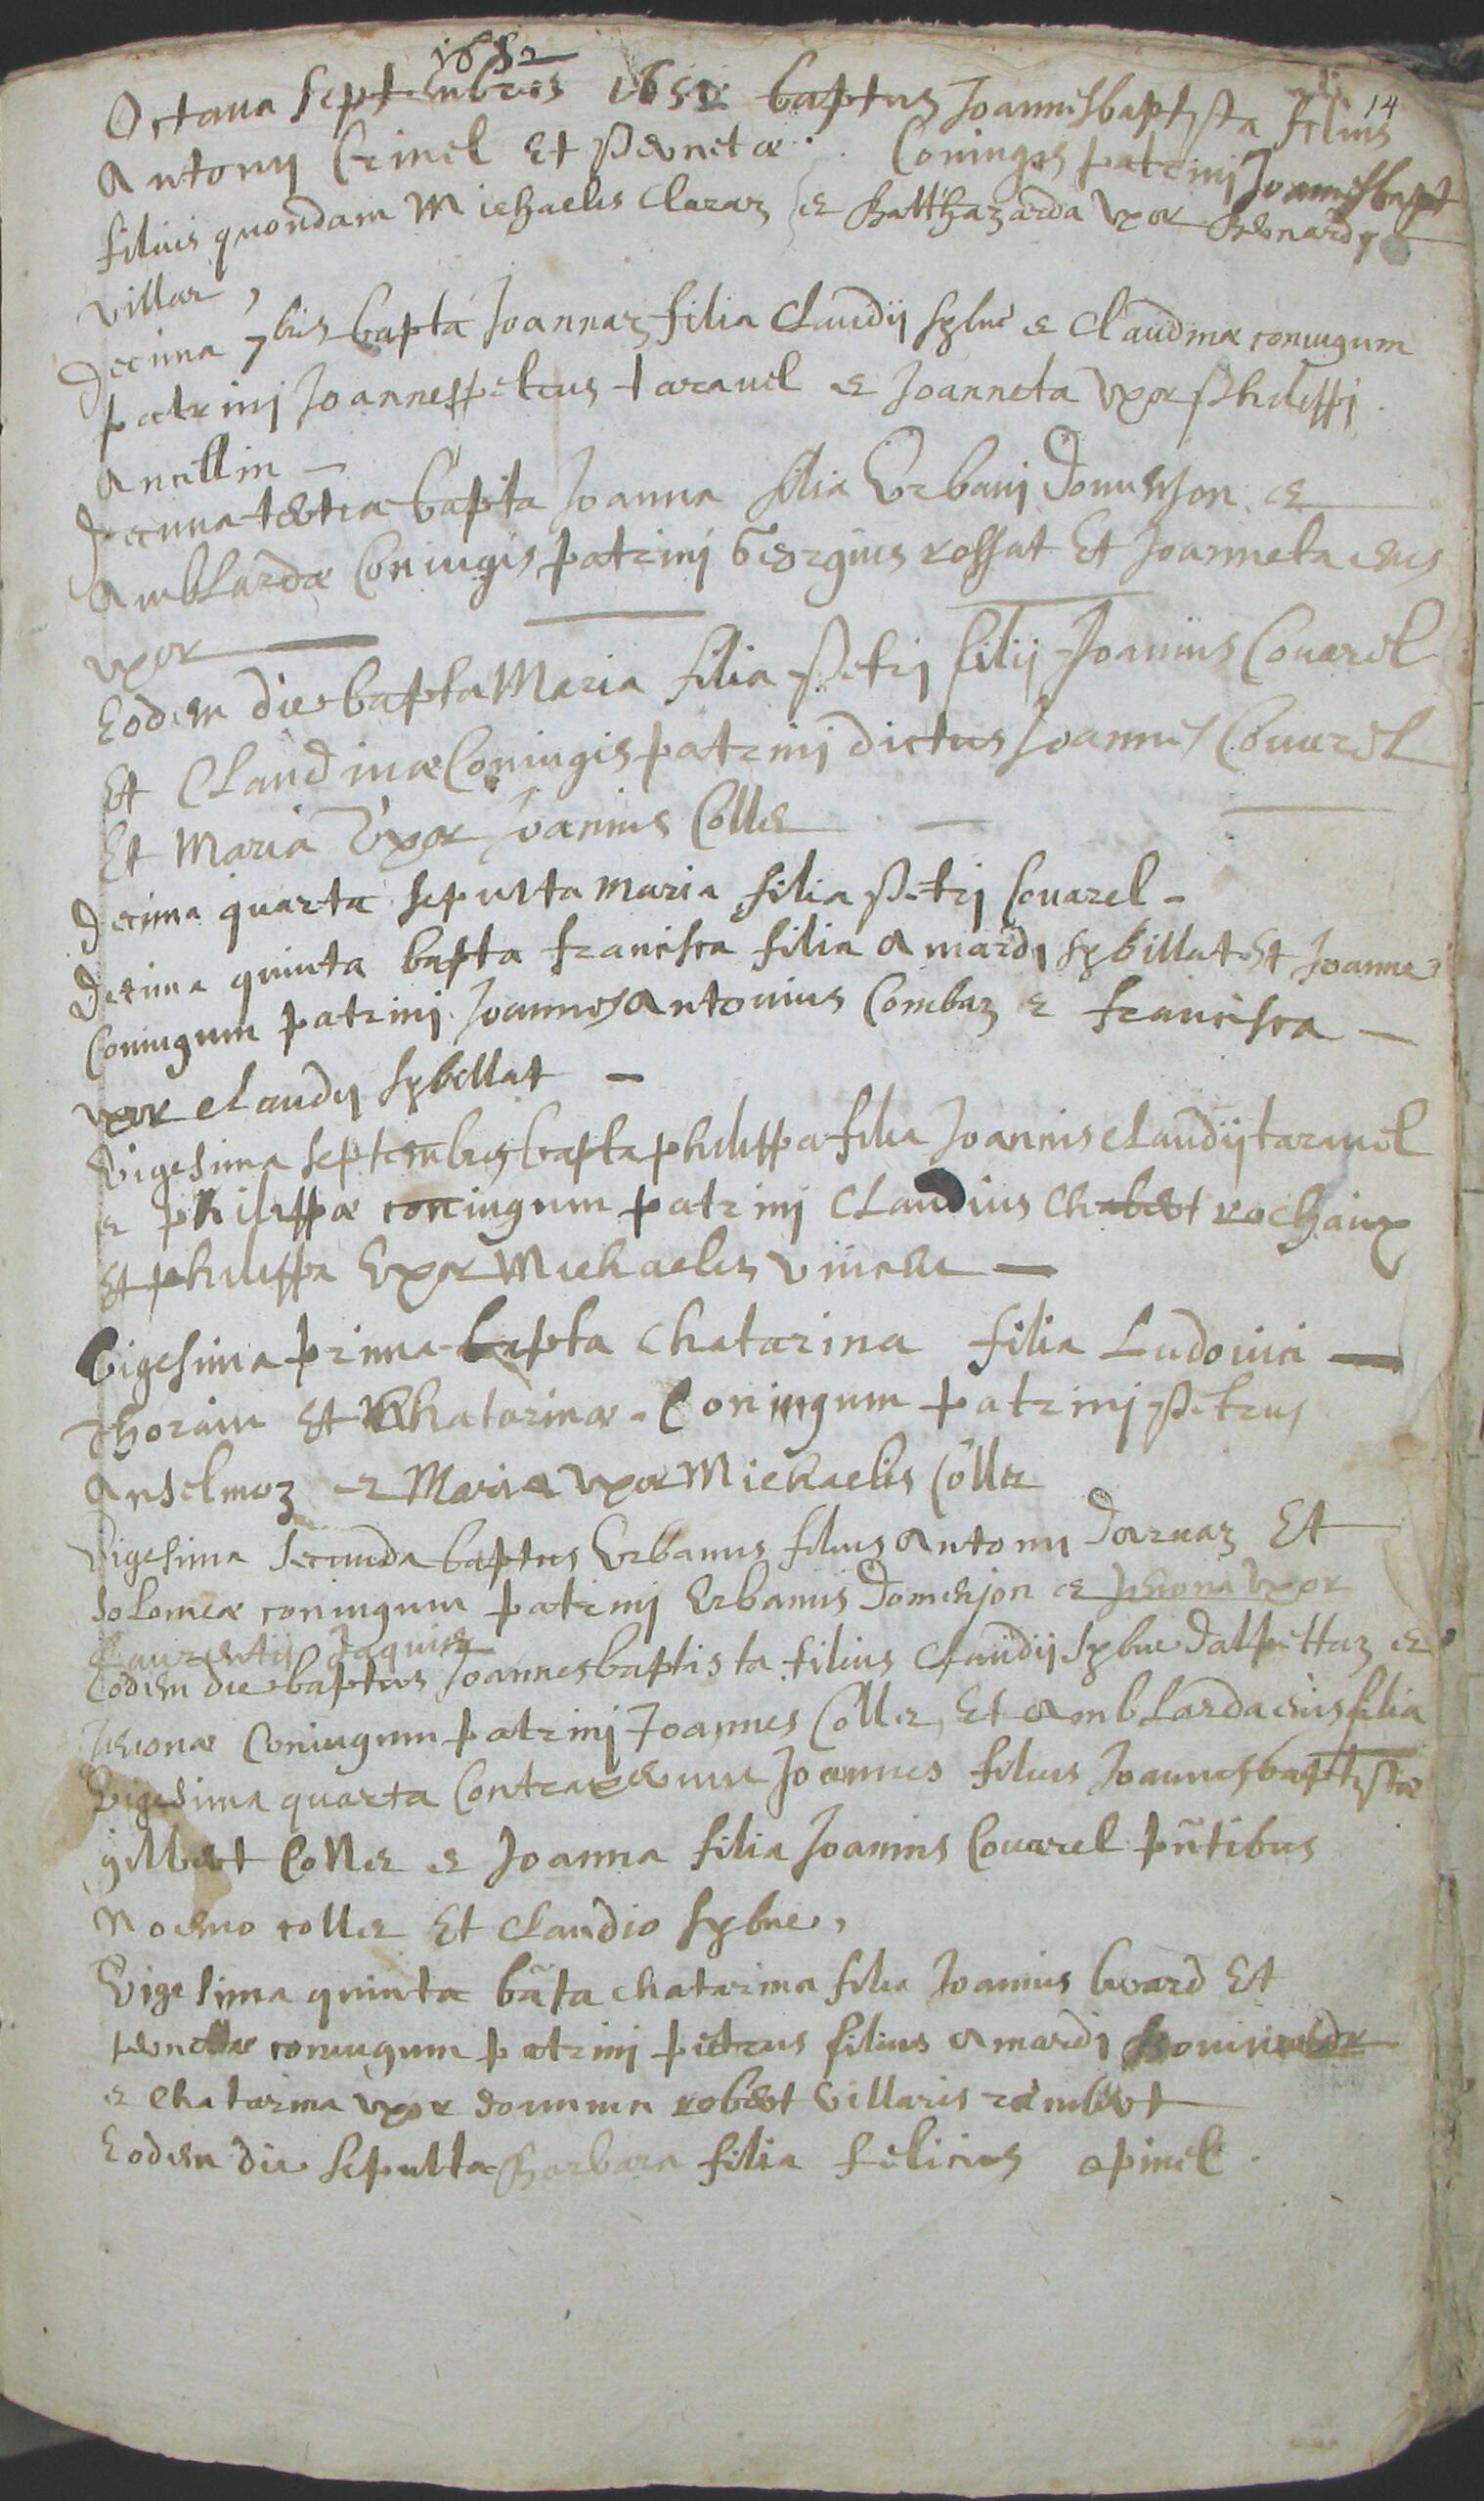 1652
14
Octaua septembris 1652 baptus Joannesbaptista filius
Antonij Crinel Et Pernetæ Coniuges patrinj Joannesbapt
filius quondam Michaelis Claraz & Balthazarda vxor Bernardj
villar,
Decima 7bris bapta Joannaz filia Claudij sybue & Claudinæ coniugum
patrinj Joannespetrus tarauel & Joanneta vxor Philippj
Ancellin —
Decima tertia bapta Joanna filia Vrbanj Domenjon &
Amblardæ Coniugis patrinj Georgius rossat Et Joanneta eius
vxor
Eodem die bapta Maria filia Petrj filij Joannis Couarel
Et Claudinæ Coniugis patrinj dictus Joannes Couarel
Et Maria Vxor Joannis Coller
Decima quarta sepulta Maria filia Petrj Couarel -
Decima quinta bapta francisca filia Amardj sybillat Et Joannæ
Coniugum patrinj Joannes Antonius Combaz & francisca —
vxor Claudij sybillat —
Vigesima septembris bapta philippa filia Joannis Claudij tarauel
& philippæ coniugum patrinj Claudius Chabert rochaix
Et philippa Vxor Michaelis
Vigesima prima bapta Chatarina filia Ludouici —
Et Chatarinæ Coniugum patrinj Petrus
Anselmoz & Maria vxor Michaelis Coller
Vigesima secunda baptus Vrbanus filius Antonij Daruaz Et
Solomeæ coniugum patrinj Vrbanus Domenjon & vxor
Laurentij Jaquier
Eodem die baptus Joannesbaptista filius Claudij sybue dalpettaz &
Coniugum patrinj Joannes Coller Et Amblarda eius filia
Vigesima quarta Contraxerunt Joannes filius Joannisbaptistæ
gilbert Coller & Joanna filia Joannis Couarel pñtibus
Noemo coller Et Claudio sybue,
Vigesima quinta bãta Chatarina filia Joannis Et
pernettæ coniugum patrinj petrus filius Amardj
& Chatarina vxor robert Villaris rambert
Eodem die sepulta Barbara filia felicius opinel